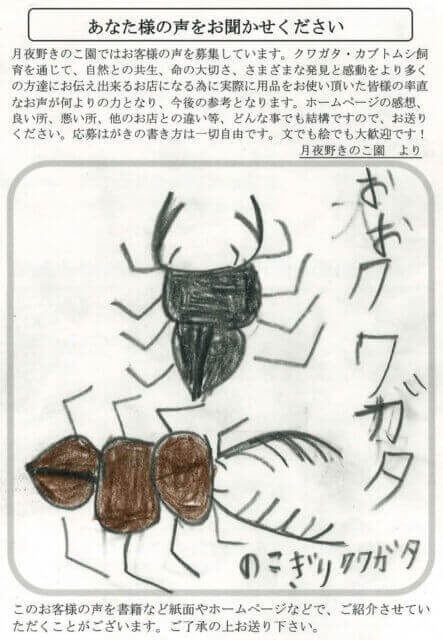 あなた様の声をお聞かせください
月夜野きのこ園ではお客様の声を募集しています。クワガタ・カブトムシ飼
育を通じて、自然との共生、命の大切さ、さまざまな発見と感動をより多く
の方達にお伝え出来るお店になる為に実際に用品をお使い頂いた皆様の率直
なお声が何よりの力となり、今後の参考となります。ホームページの感想、
良い所、悪い所、他のお店との違い等、どんな事でも結構ですので、お送り
ください。応募はがきの書き方は一切自由です。文でも絵でも大歓迎です！
月夜野きのこ園　より
おおクワガタ
のこぎりクワガタ
このお客様の声を書籍など紙面やホームページなどで、ご紹介させてい
ただくことがございます。ご了承の上お送り下さい。